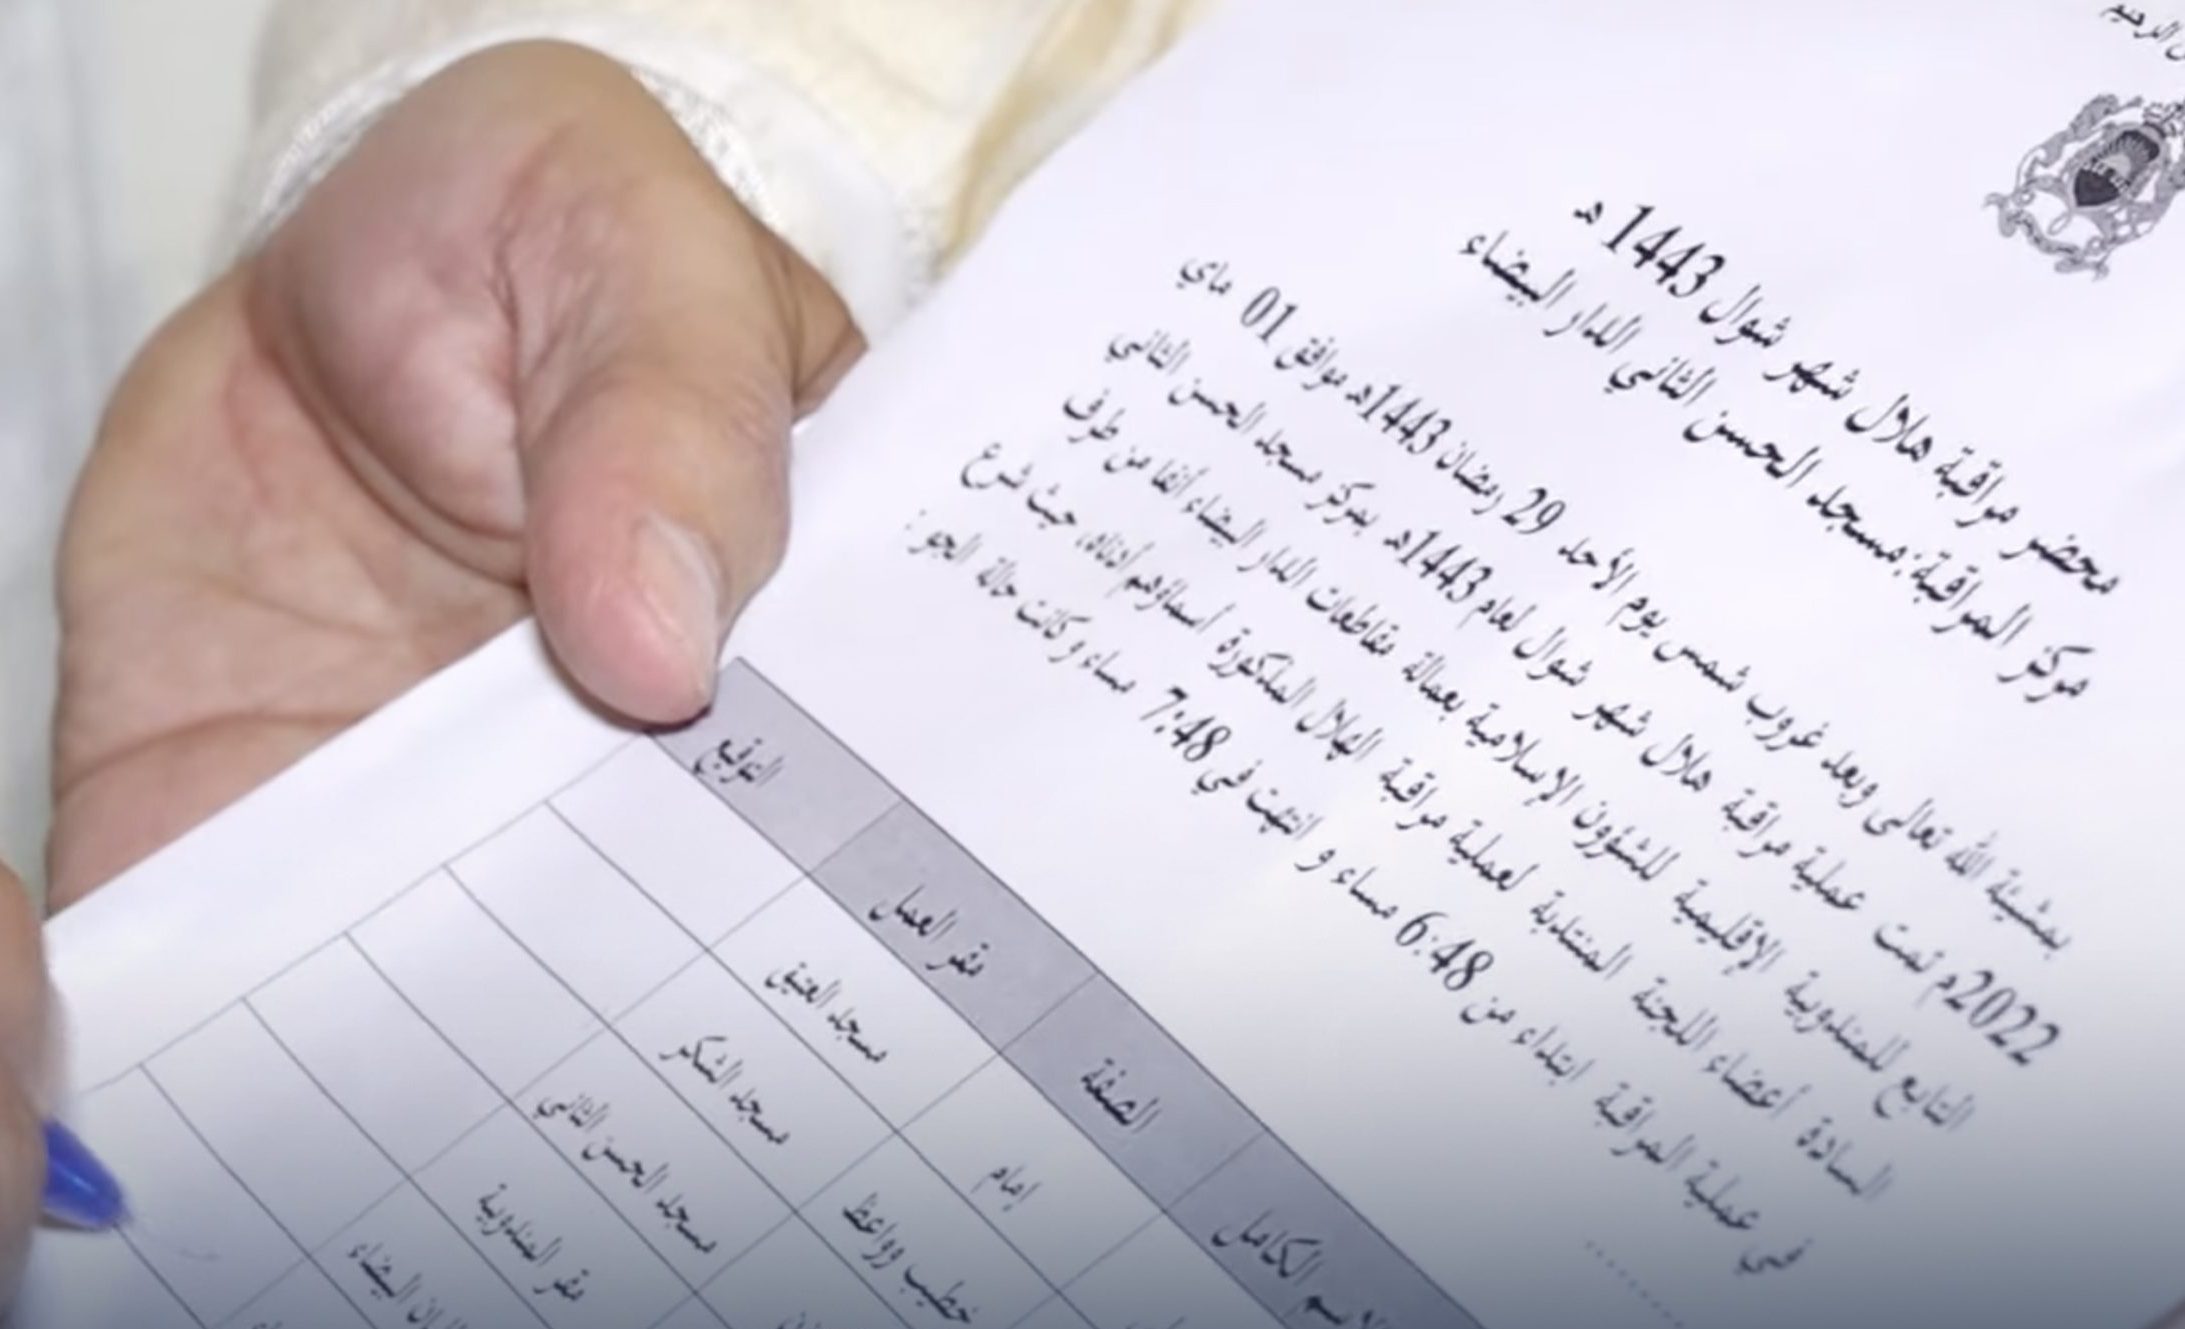 محضر مراقبة هلال شهر شوال 1443 هـ
مركز المراقبة: مسجد الحسن الثاني الدار البيضاء
بمشيئة الله تعالى وبعد غروب شمس يوم الأحد 29 رمضان 1443هـ موافق 01 ماي
2022م تمت عملية مراقبة هلال شهر شوال لعام 1443هـ بمركز مسجد الحسن الثاني
التابع للمندوبية الإقليمية للشؤون الإسلامية بعمالة مقاطعات الدار البيضاء أنفا من طرف
السادة أعضاء اللجنة المنتدبة لعملية مراقبة الهلال المذكورة أسماؤهم أدناه، حيث شرع
في عملية المراقبة ابتداء من 6:48 مساء و انتهت في 7:48 مساء وكانت حالة الجو :
.........
الاسم الكامل الصفة مقر العمل التوقيع
إمام مسجد العتيق
خطيب وواعظ مسجد الشكر
مسجد الحسن الثاني
مقر المندوبية
البيضاء